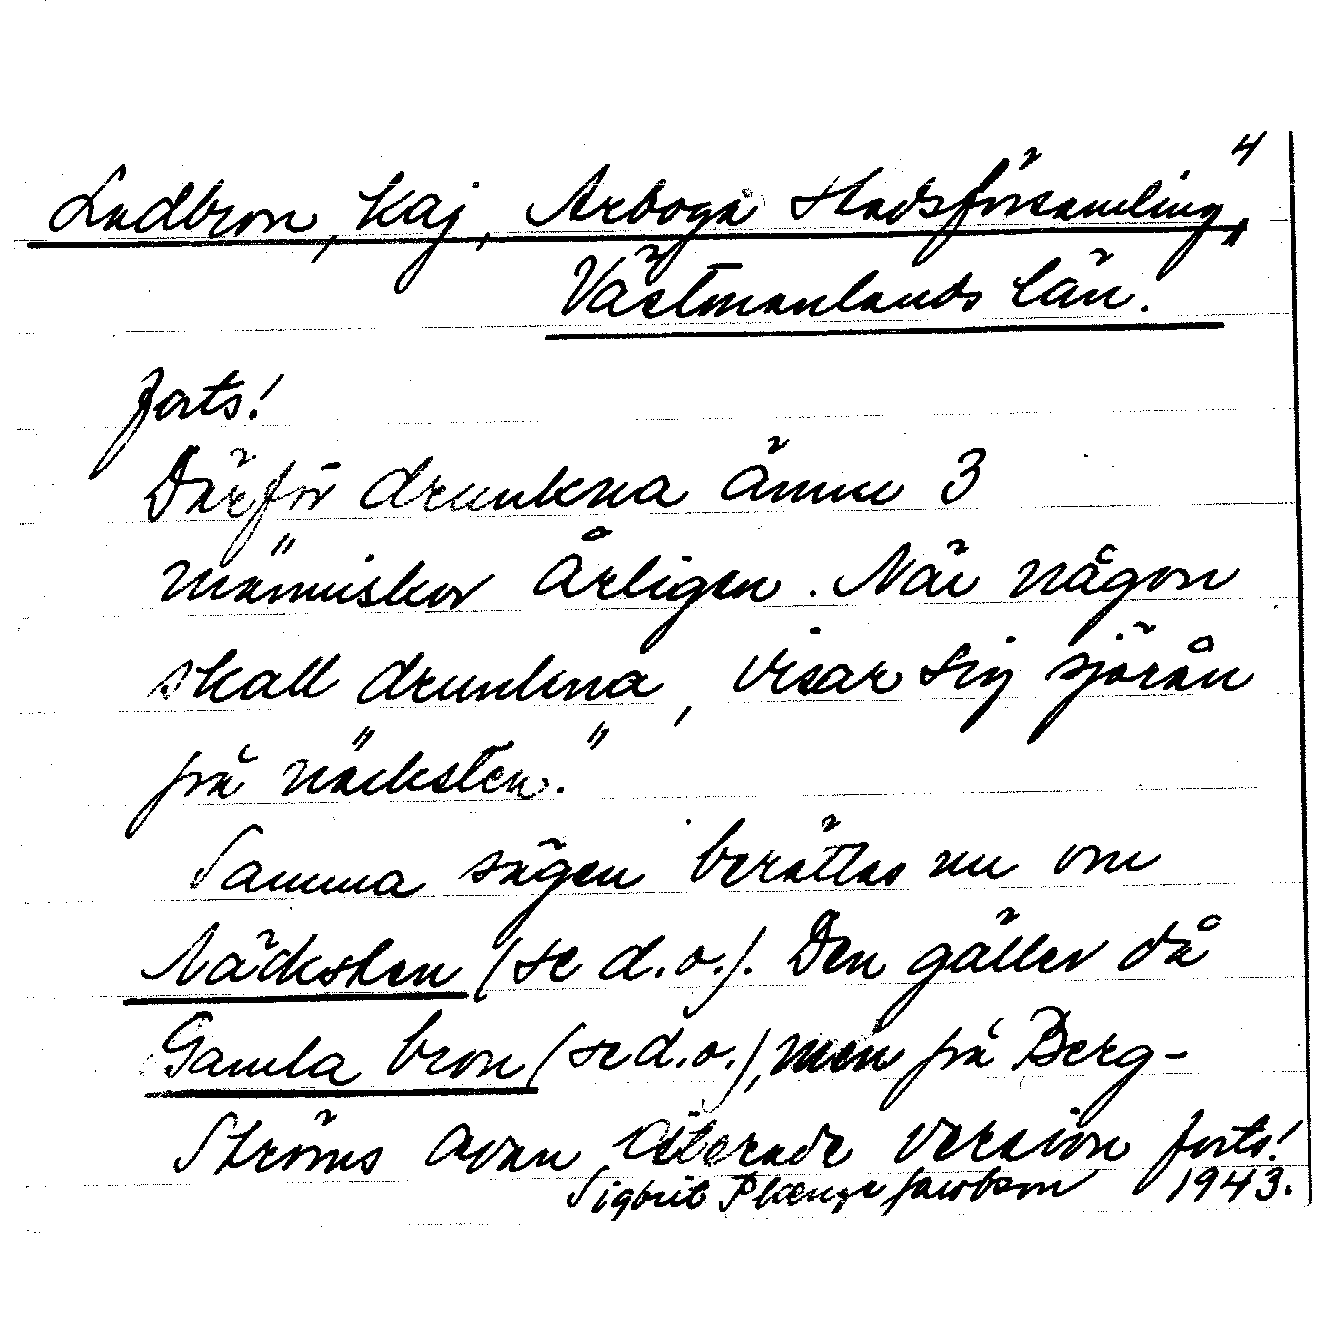 4
Ladbron, kaj, Arboga stadsförsamling,
Västmanlands län.
forts!
Därför drunkna ännu 3
människor årligen. När någon
skall drunkna, visar sig sjörån
på näcksten."
Samma sägen berättas nu om
Näcksten (se d.o.). Den gäller då
Gamla bron (se d.o.), men på Berg-
ströms ovan citerade version forts!
Sigbrit Plænge Jacobson 1943.